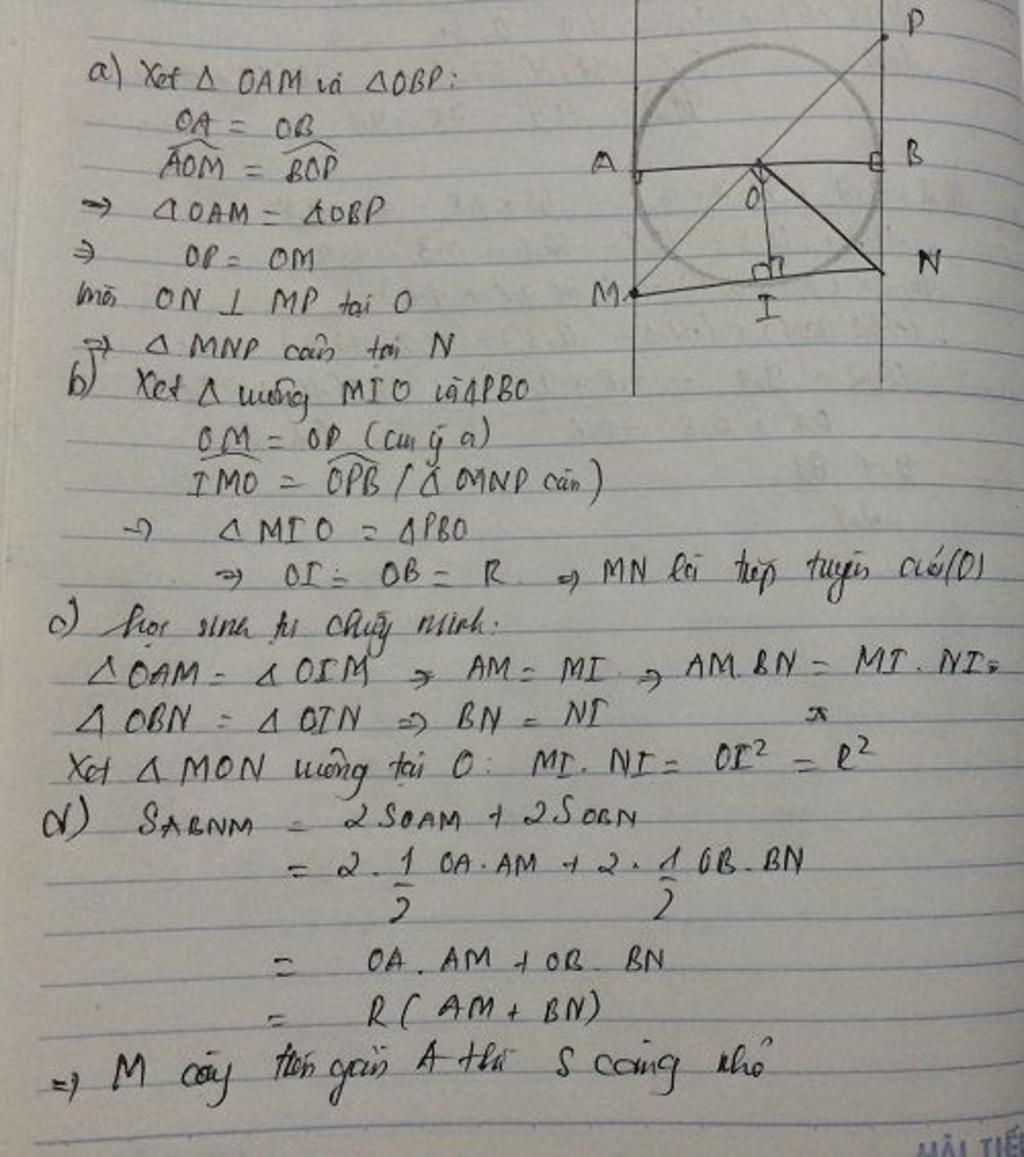 a) Xét Δ OAM và ΔOBP:
OA = OB
AOM = BOP
⇒ Δ OAM = ΔOBP
⇒ OP = OM
mà ON ⊥ MP tại O
⇒ Δ MNP cân tại N
b) Xét Δ vuông MIO và ΔPBO
OM = OP (cm ý a)
IMO = OPB (Δ MNP cân)
→ Δ MIO = ΔPBO
⇒ OI = OB = R ⇒ MN là tiếp tuyến của (O)
c) học sinh tự chứng minh:
Δ OAM = Δ OIM ⇒ AM = MI ⇒ AM. BN = MI. NI =
Δ OBN = Δ OIN ⇒ BN = NI
Xét Δ MON vuông tại O: MI. NI = OI² = R²
d) SABNM = 2 SOAM + 2 SOBN
= 2. 1/2 OA. AM + 2. 1/2 OB. BN
= OA. AM + OB. BN
= R( AM + BN)
⇒ M càng gần A thì S càng nhỏ
P
A
B
O
M
N
I
HẢI TIẾ